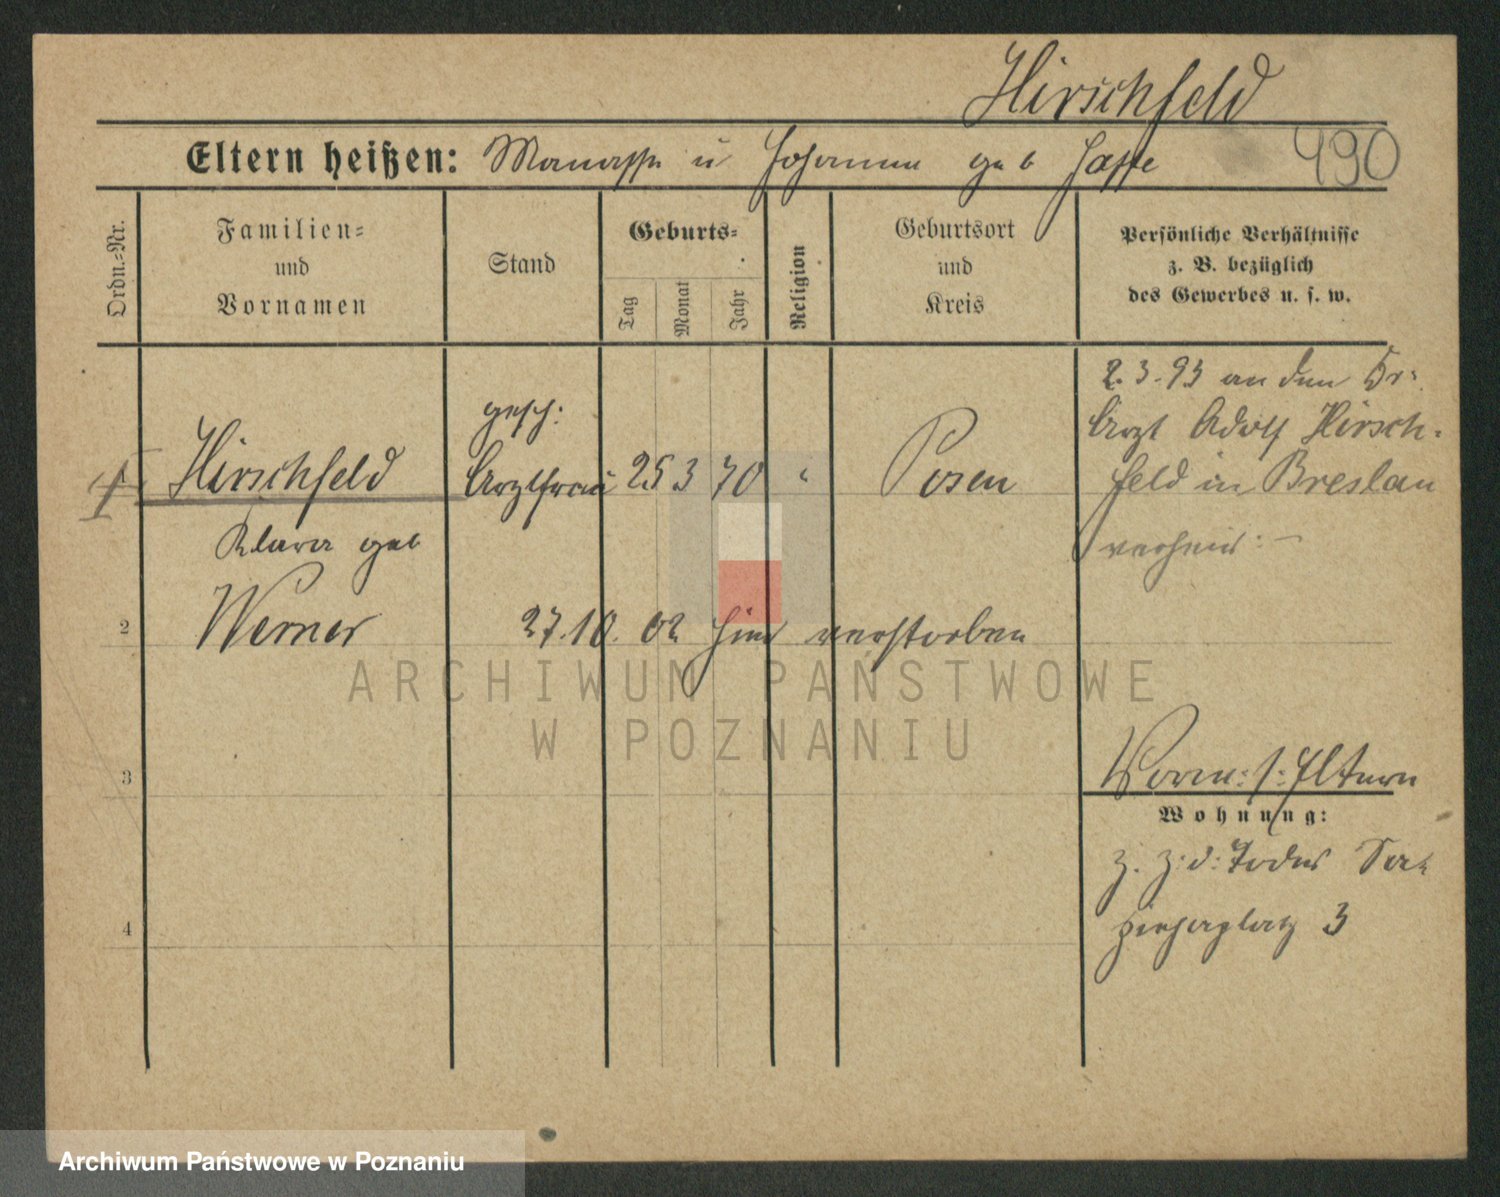 Hirschfeld
490
Eltern heißen: Manasse u Johanna geb Jaffe
Ordn.-Nr.
Familien-
und
Vornamen
Stand
Geburts-
Tag
Monat
Jahr
Religion
Geburtsort
und
Kreis
Persönliche Verhältnisse
z. B. bezüglich
des Gewerbes u. s. w.
1
Hirschfeld
Klara geb
Werner
gesch:
Arztfrau
25 3 70
Posen
2.3.93 an den Dr:
Arzt Adolf Hirsch-
feld in Breslau
verheir:
2
27.10.02 hier verstorben
3
Eltern
Wohnung:
z. Z: d: Todes
platz 3
4
ARCHIWUM PAŃSTWOWE
W POZNANIU
Archiwum Państwowe w Poznaniu